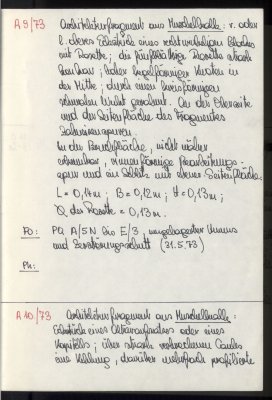 A9/73 Architekturfragment aus Muschelkalk: r. oder
l. oberes Eckstück eines rechtwinkligen Blockes
mit Rosette; die fünfblättrige Rosette stark
bestoßen; hoher kegelförmiger Knoten in
der Mitte; durch einen kreisförmigen
schmalen Wulst gerahmt. An der Oberseite
und der Seitenfläche des Fragmentes
Zahneisenspuren.
In der Bruchfläche, nicht näher
erkennbar, rinnenförmige Bearbeitungs-
spur und an Seite mit ebener Seitenfläche.
L = 0,14m; B = 0,12m; H = 0,13m;
Ø der Rosette = 0,13m.
Fo: PQ A/5N bis E/3, umgelagerter Humus
und Zerstörungsschutt (31.5.73)
Ph:
A10/73 Architekturfragment aus Muschelkalk:
Eckstück eines Altaraufsatzes oder eines
Kapitells; über stark verbrochenem
eine Kehlung, darüber mehrfach profilierte